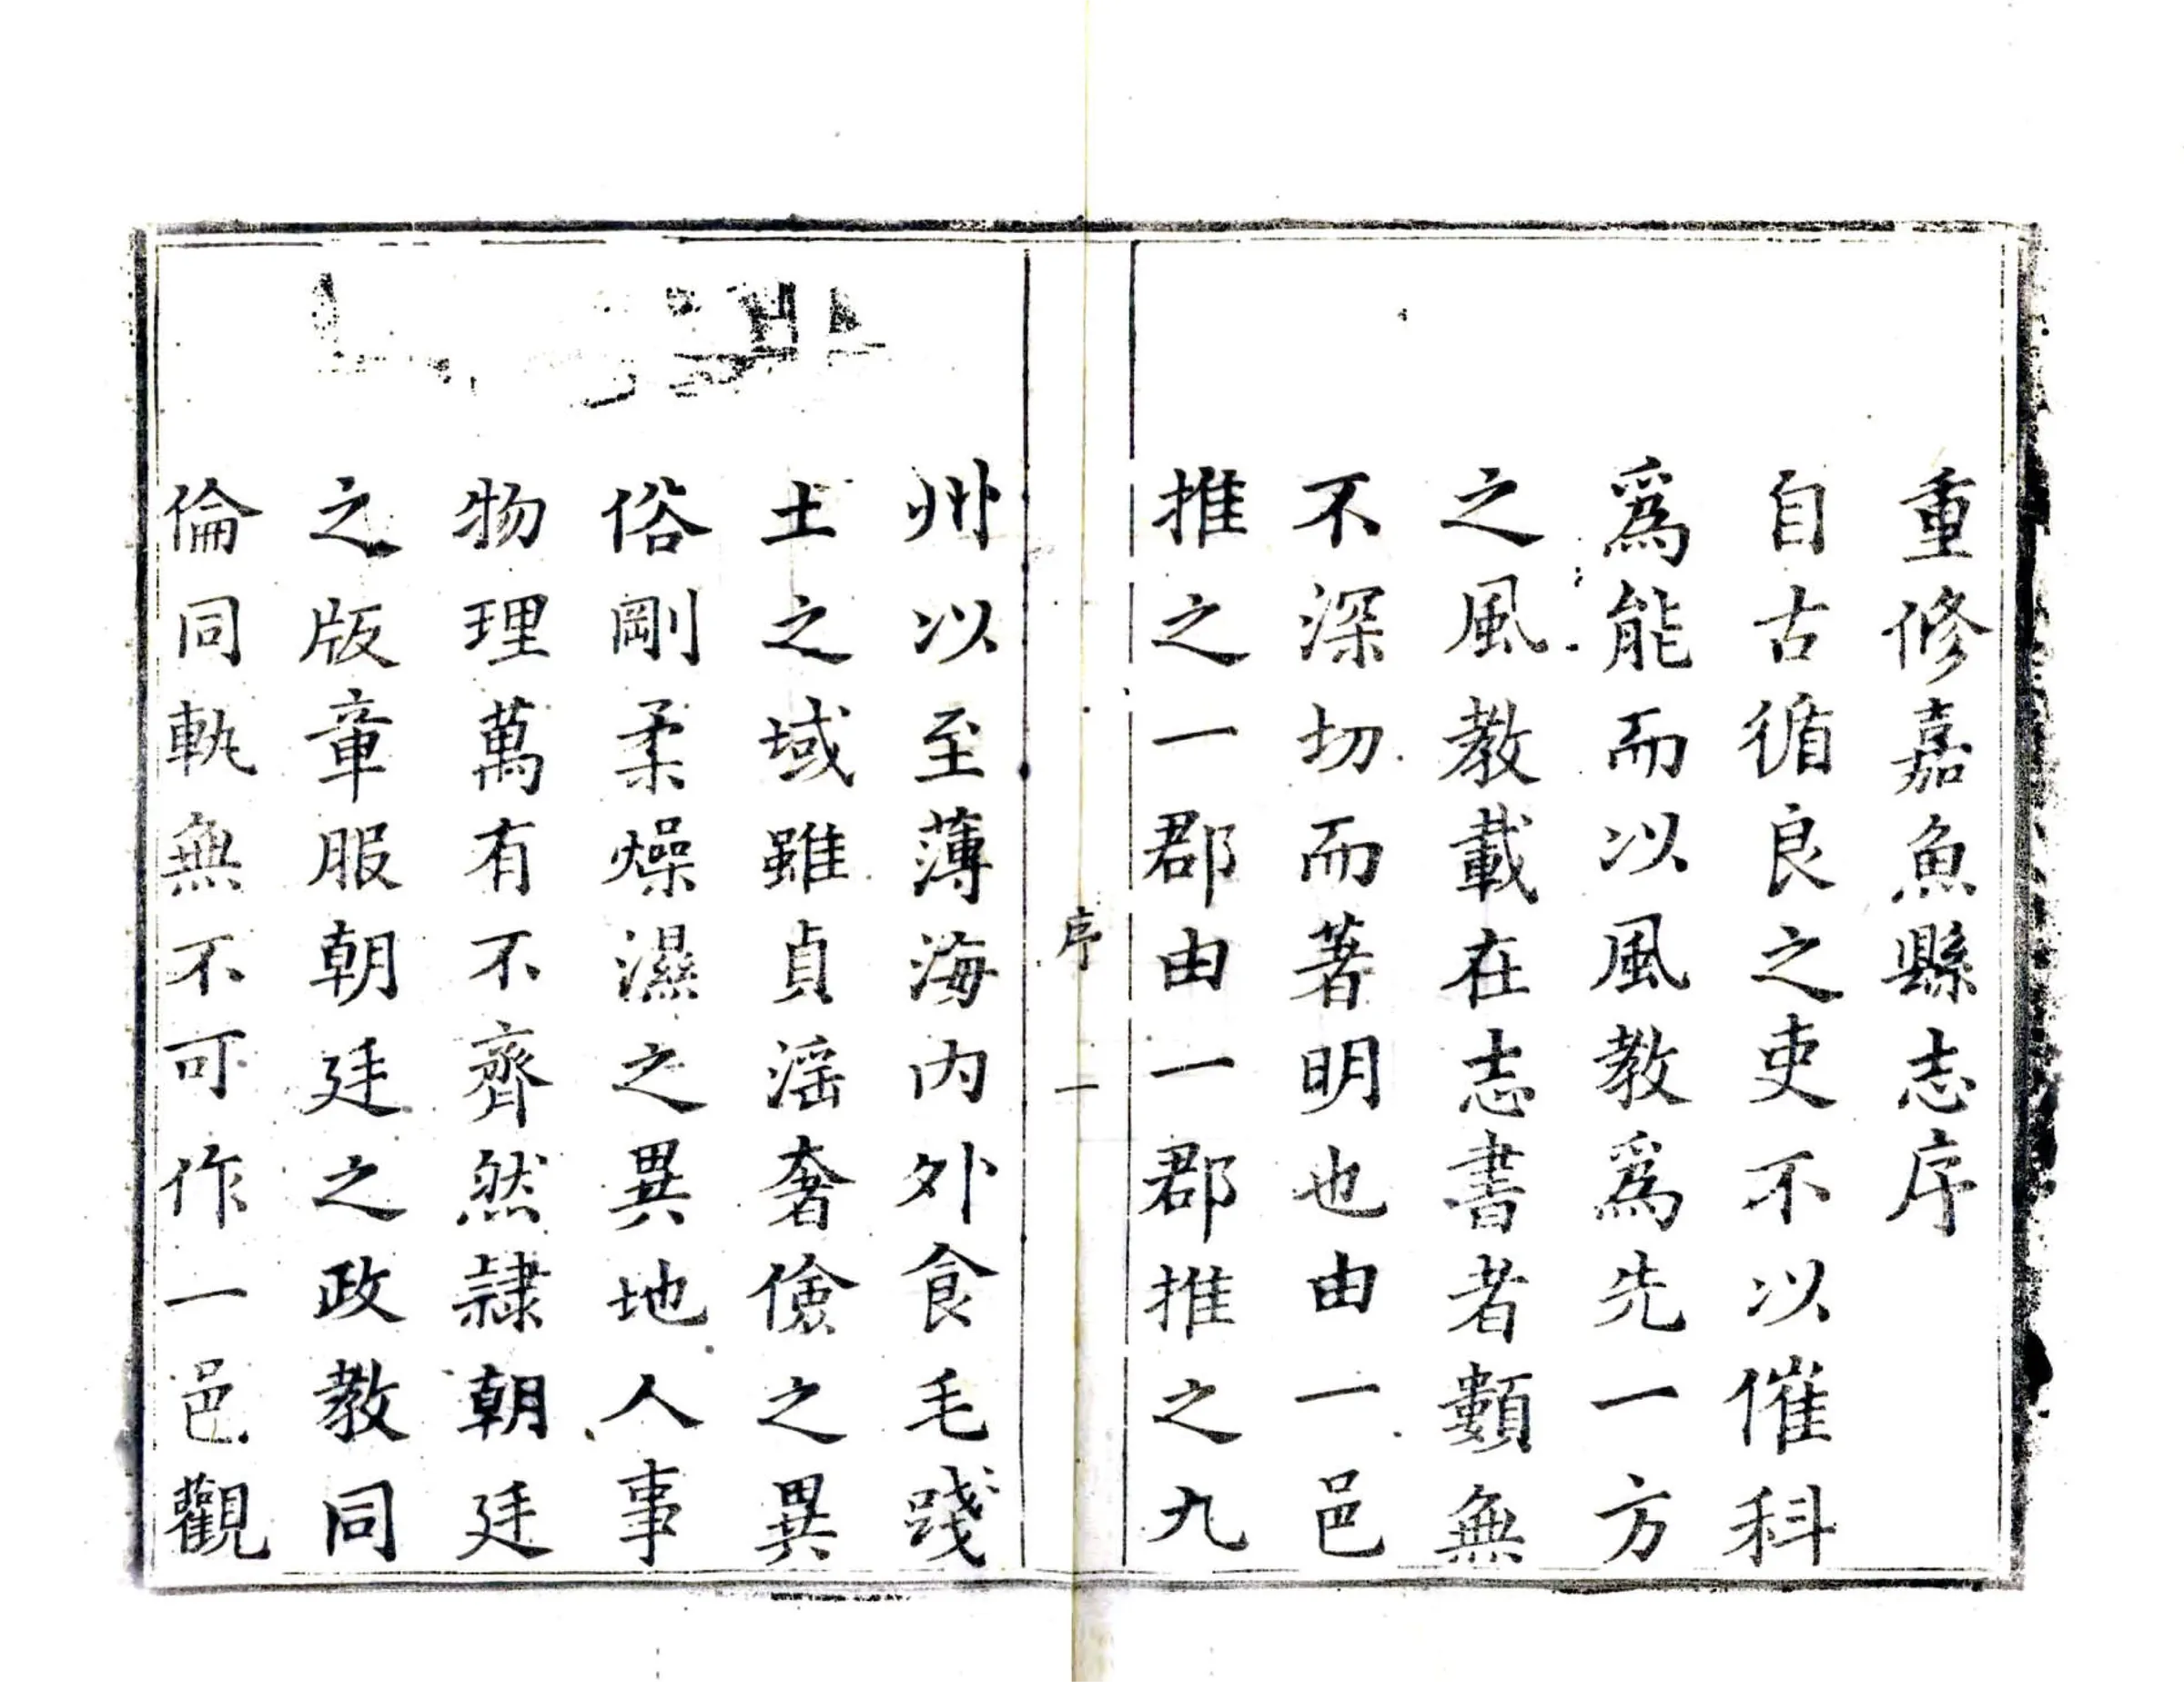 重修嘉魚縣志序
自古循良之吏不以催科
爲能而以風教爲先一方
之風教載在志書者類無
不深切而著明也由一邑
推之一郡由一郡推之九
序 一
州以至薄海內外食毛踐
土之域雖貞淫奢儉之異
俗剛柔燥濕之異地人事
物理萬有不齊然隷朝廷
之版章服朝廷之政教同
倫同軌無不可作一邑觀